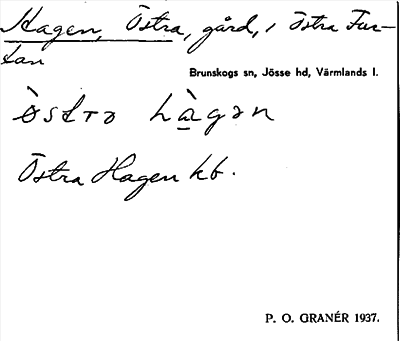 Hagen, Östra, gård, i Östra Fur-
tan
Brunskogs sn, Jösse hd, Värmlands l.
òstrə hàgən
Östra Hagen kb.
P. O. GRANÉR 1937.